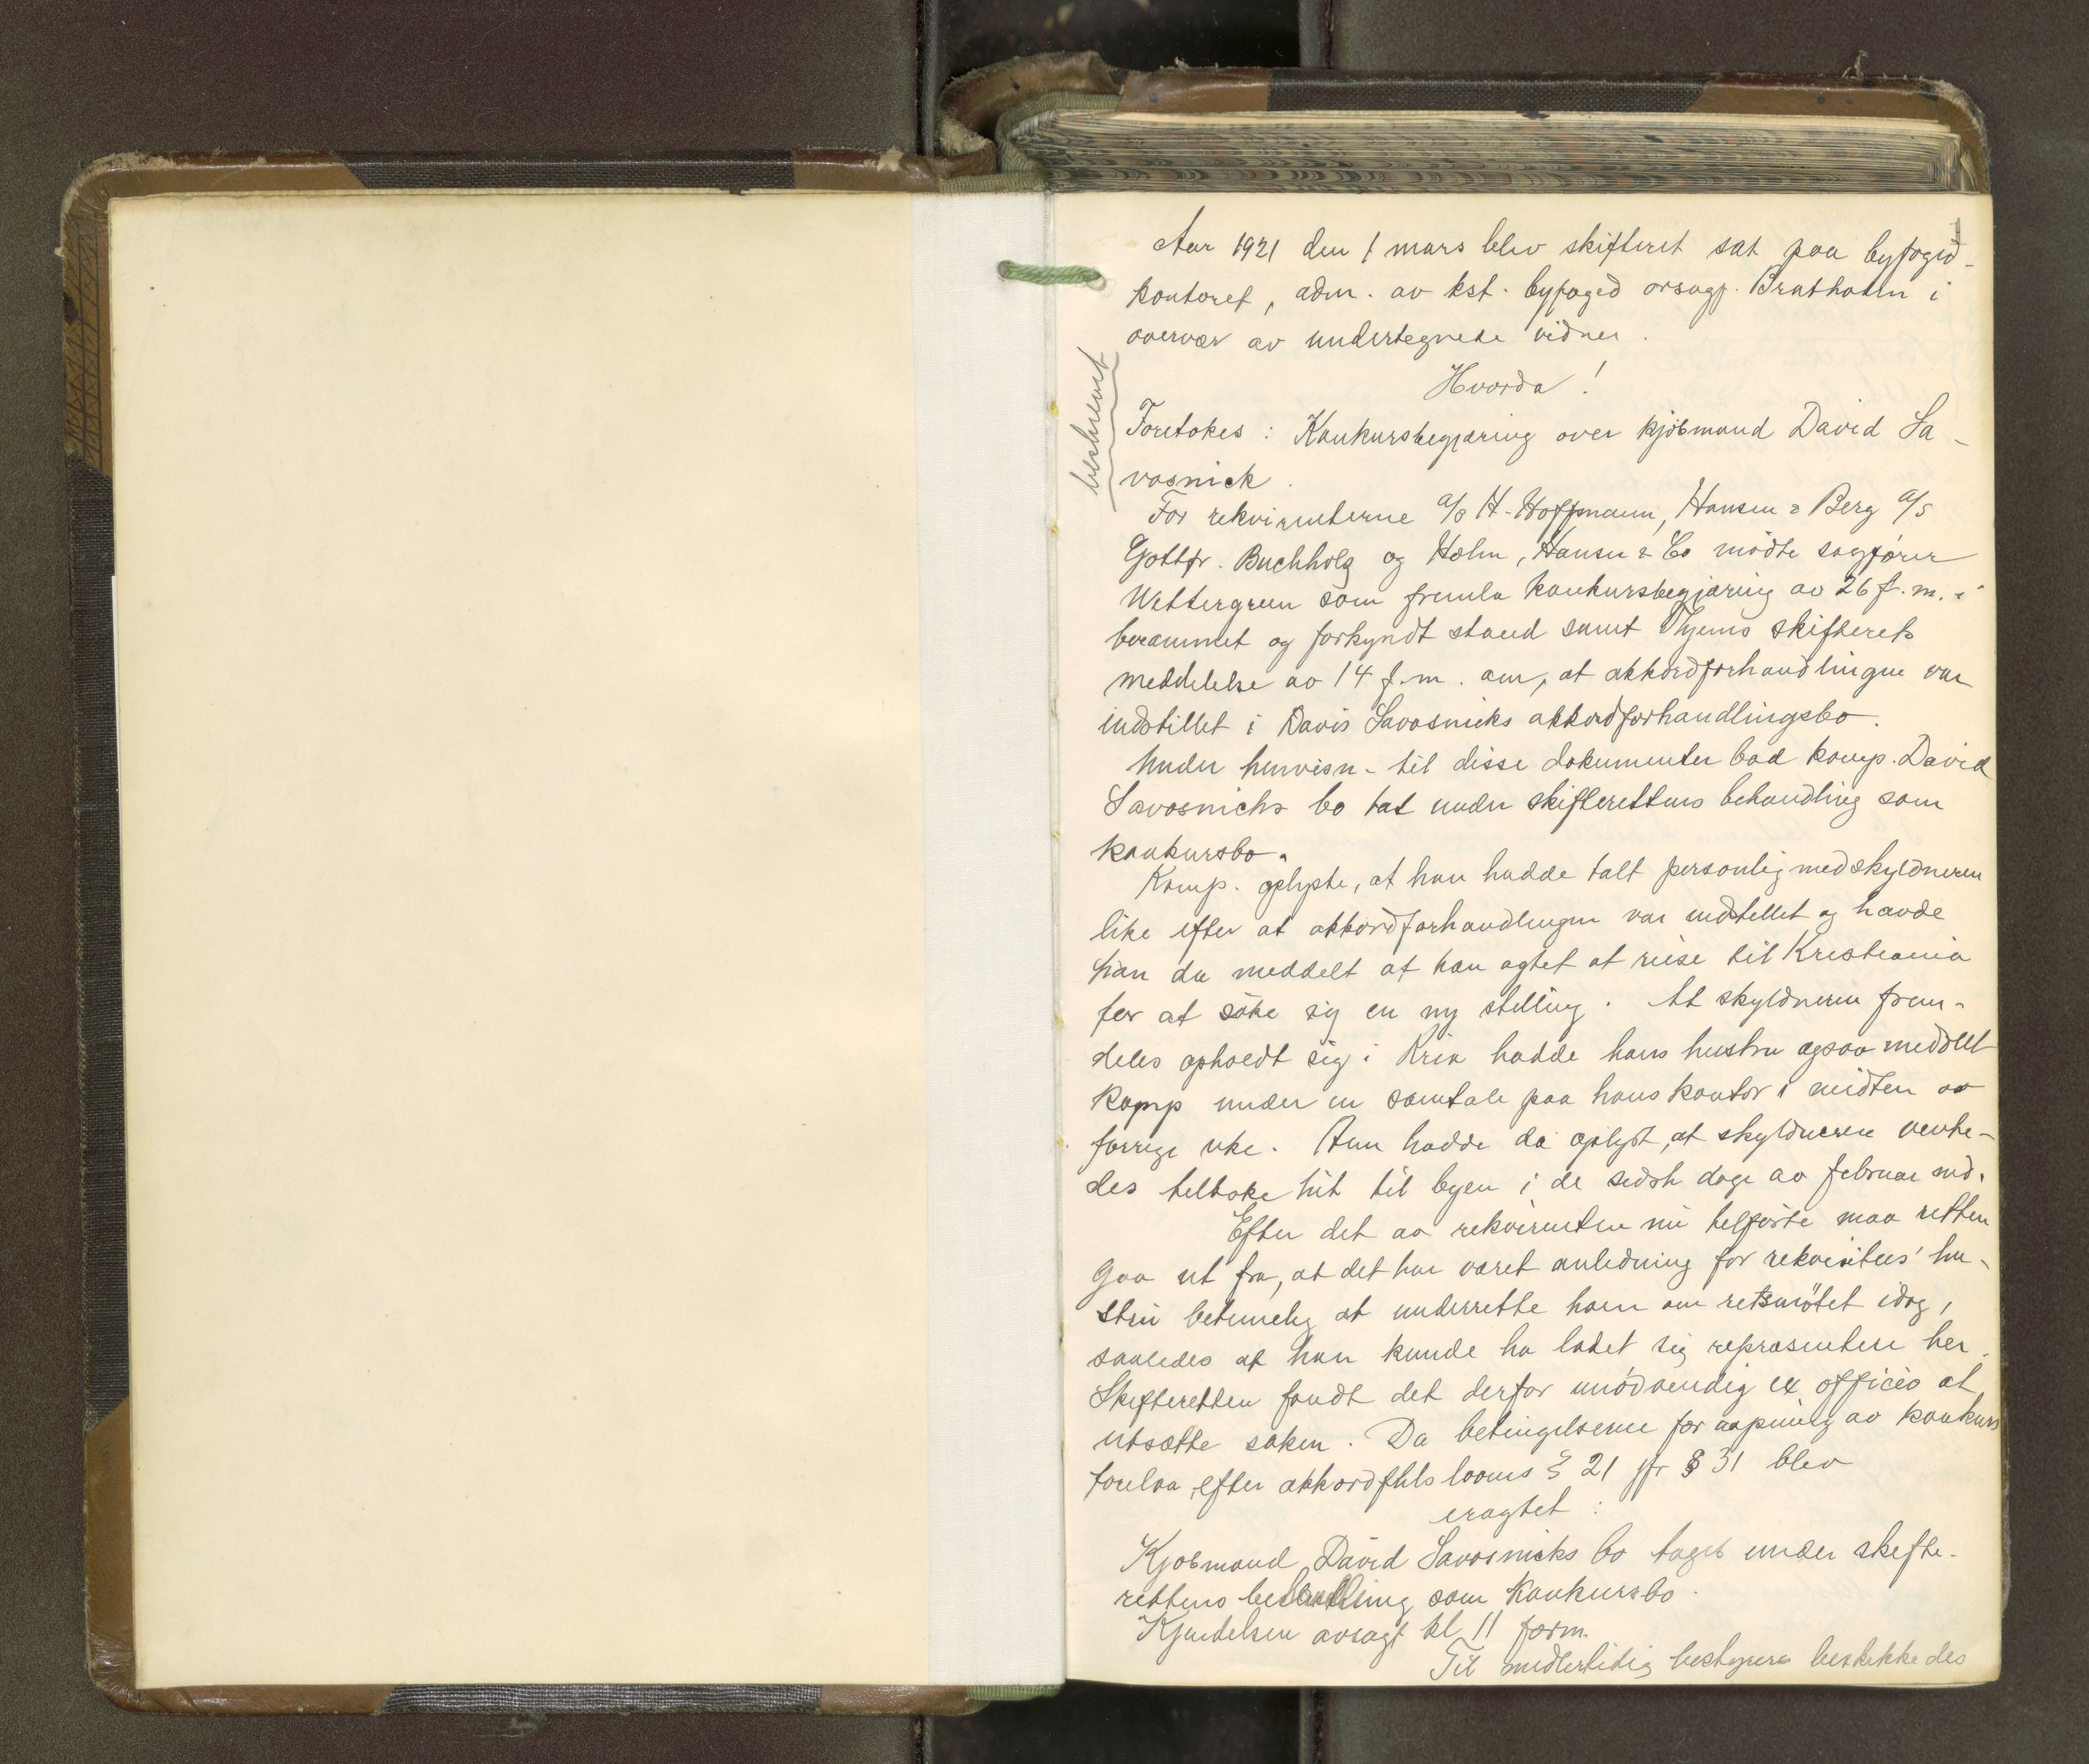 1
Aar 1921 den 1 mars blev skifteret sat paa byfoged-
kontoret, adm. av kst. byfoged orsagf. Bratholm i
overvær av undertegnede vidner.
Hvorda!
beskrevet
Foretokes: Konkursbegjæring over kjøbmand David Sa-
vosnick.
For rekvirenterne a/s H. Hoffmann, Hansen & Berg a/s
Gottfr. Buchholz og Holm, Hansen & Co mødte sagfører
Wettergreen som fremla konkursbegjæring av 26 f.m. i
berammet og forkyndt stand samt byens skifterets
meddelelse av 14 f.m. om, at akkordforhandlingen var
indstillet i David Savosnicks akkordforhandlingsbo.
Under henvisn. til disse dokumenter bad komp. David
Savosnicks bo tat under skifterettens behandling som
konkursbo.
Komp. oplyste, at han hadde talt personlig med skyldneren
like efter at akkordforhandlingen var indstillet og havde
han da meddelt at han agtet at reise til Kristiania
for at søke sig en ny stilling. At skyldneren frem-
deles opholdt sig i Kria hadde hans hustru ogsaa meddelt
komp under en samtale paa hans kontor i midten av
forrige uke. Hun hadde da oplyst, at skyldneren vente-
des tilbake hit til byen i de sidste dage av februar md.
Efter det av rekvirenten nu tilførte maa retten
gaa ut fra, at det har været anledning for rekvisitus' hu-
stru betimelig at underrette ham om retsmøtet idag,
saaledes at han kunde ha latet sig repræsentere her.
Skifteretten fandt det derfor unødvendig ex officio at
utsætte saken. Da betingelserne for aapning av konkurs
forelaa efter akkordfhls lovens § 21 jfr § 31 blev
eragtet:
Kjøbmand David Savosnicks bo tages under skifte-
rettens behandling som konkursbo.
Kjendelsen avsagt kl 11 form.
Til midlertidig bestyrer beskikkedes